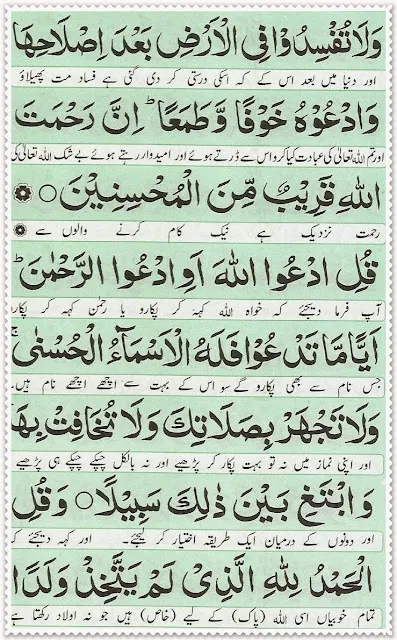 وَلَا تُفْسِدُوْا فِى الْاَرْضِ بَعْدَ اِصْلَاحِهَا
اور دنیا میں بعد اس کے کہ اسکی درستی کر دی گئی ہے فساد مت پھیلاؤ
وَادْعُوْهُ خَوْفًا وَّطَمَعًا ؕ اِنَّ رَحْمَتَ
اور تم اللہ تعالیٰ کی عبادت کیا کرو اس سے ڈرتے ہوئے اور امیدوار رہتے ہوئے بے شک اللہ تعالیٰ کی
اللهِ قَرِيْبٌ مِّنَ الْمُحْسِنِيْنَ ○
رحمت نزدیک ہے نیک کام کرنے والوں سے
قُلِ ادْعُوا اللهَ اَوِ ادْعُوا الرَّحْمٰنَ ؕ
آپ فرما دیجئے کہ خواہ اللہ کہہ کر پکارو یا رحمٰن کہہ کر پکارو
اَيًّا مَّا تَدْعُوْا فَلَهُ الْاَسْمَآءُ الْحُسْنٰى ۚ
جس نام سے بھی پکارو گے سو اس کے بہت سے اچھے اچھے نام ہیں۔
وَلَا تَجْهَرْ بِصَلَاتِكَ وَلَا تُخَافِتْ بِهَا
اور اپنی نماز میں نہ تو بہت پکار کر پڑھیے اور نہ بالکل چپکے چپکے ہی پڑھیے
وَابْتَغِ بَيْنَ ذٰلِكَ سَبِيْلًا ○ وَقُلِ
اور دونوں کے درمیان ایک طریقہ اختیار کر لیجئے۔ اور کہہ دیجئے کہ
الْحَمْدُ لِلّٰهِ الَّذِىْ لَمْ يَتَّخِذْ وَلَدًا
تمام خوبیاں اسی اللہ (پاک) کے لیے (خاص) ہیں جو نہ اولاد رکھتا ہے